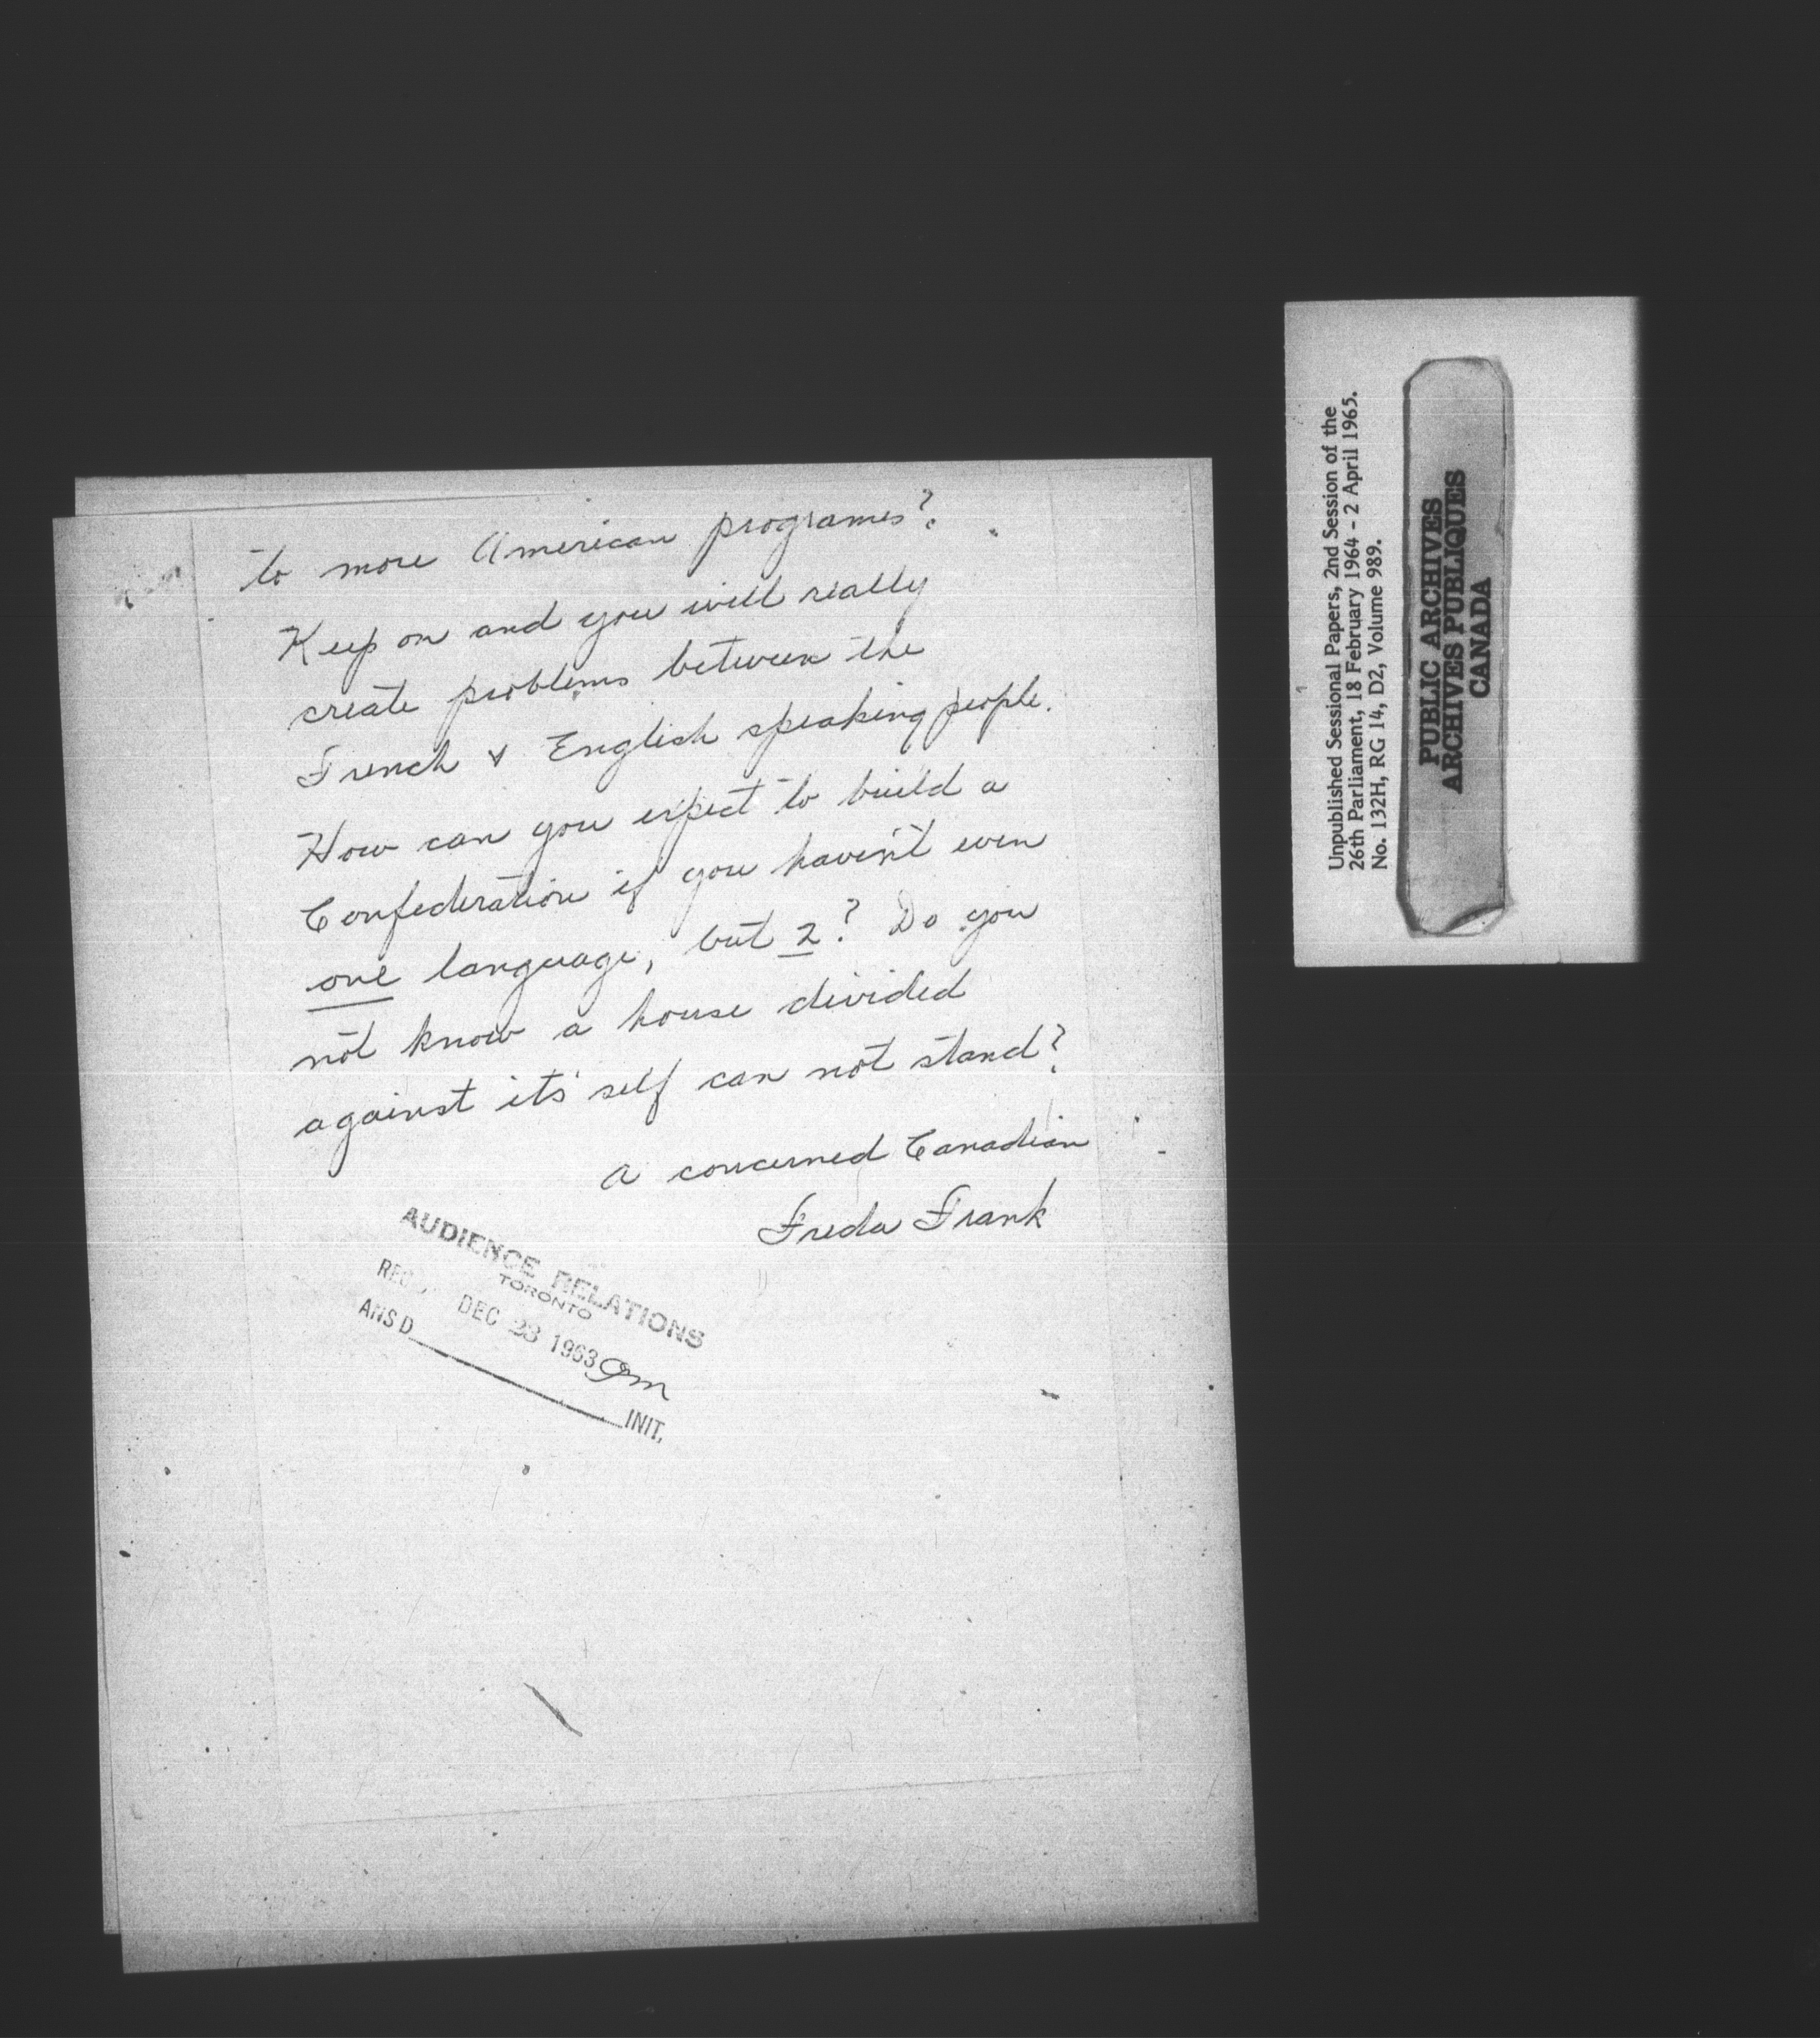 to more American programes?
Keep on and you will really
create problems between the
French & English speaking people.
How can you expect to build a
Confederation if you haven't even
one language, but 2? Do you
not know a house divided
against it's self can not stand?
A concerned Canadian
Freda Frank
AUDIENCE RELATIONS
TORONTO
DEC 23 1963
ANS D
INIT.
Unpublished Sessional Papers, 2nd Session of the
26th Parliament, 18 February 1964 - 2 April 1965.
No. 132H, RG 14, D2, Volume 989.
PUBLIC ARCHIVES
ARCHIVES PUBLIQUES
CANADA